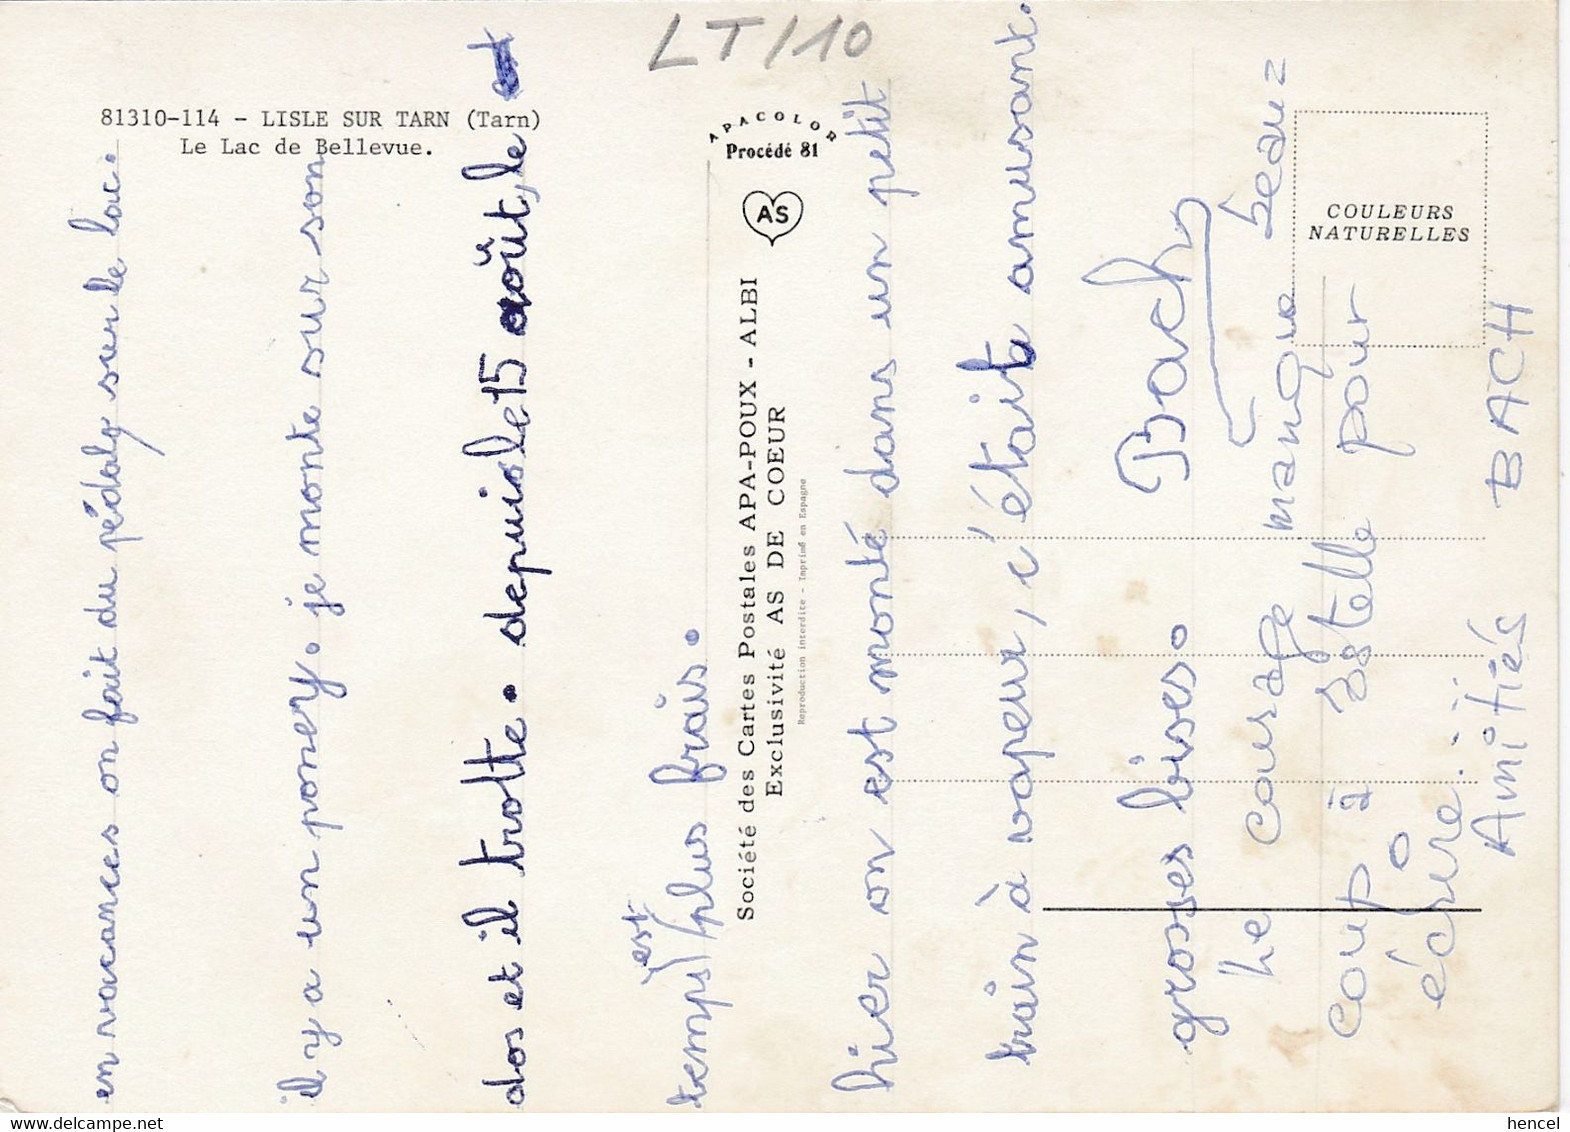 LT/10
81310-114 - LISLE SUR TARN (Tarn)
Le Lac de Bellevue.
APACOLOR
Procédé 81
AS
COULEURS
NATURELLES
Société des Cartes Postales APA-POUX - ALBI
Exclusivité AS DE COEUR
Reproduction interdite - Imprimé en Espagne
en vacances on fait du pédalo sur le lac.
il y a un poney. je monte sur son
dos et il trotte. depuis le 15 août, le
temps est plus frais.
hier on est monté dans un petit
train à vapeur, c'était amusant.
grosses bises.
Le courage manque beau=
coup à Estelle pour
écrire...
Amitiés BACH
delcampe.net
hencel